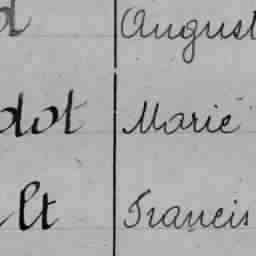 d August
dot Marie
lt Francis